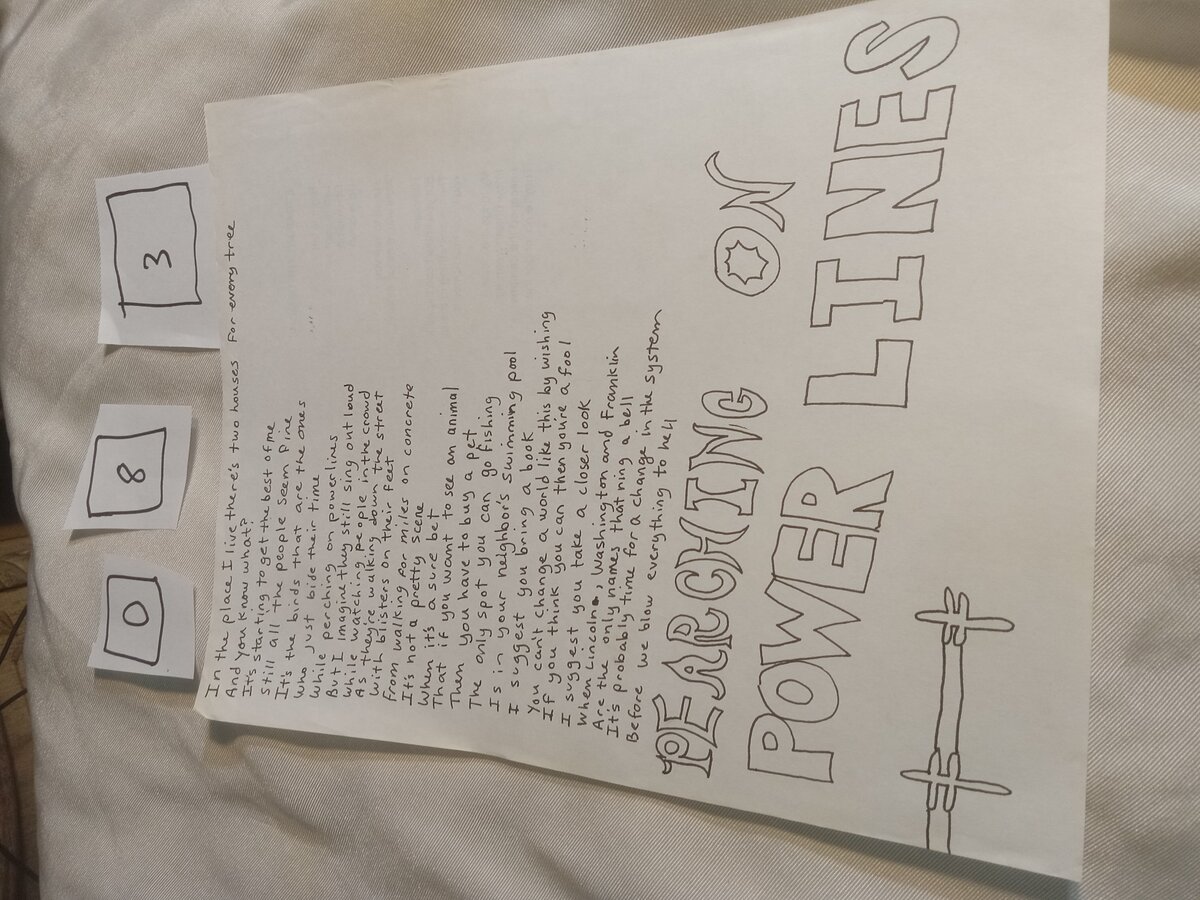 0 8 3
In the place I live there's two houses for every tree
And you know what?
It's starting to get the best of me
Still all the people seem fine
It's the birds that are the ones
Who just bide their time
While perching on powerlines
But I imagine they still sing out loud
While watching people in the crowd
As they're walking down the street
With blisters on their feet
From walking for miles on concrete
It's not a pretty scene
When it's a sure bet
That if you want to see an animal
Then you have to buy a pet
The only spot you can go fishing
Is in your neighbor's swimming pool
I suggest you bring a book
You can't change a world like this by wishing
If you think you can then you're a fool
I suggest you take a closer look
When Lincoln, Washington and Franklin
Are the only names that ring a bell
It's probably time for a change in the system
Before we blow everything to hell
PEARCHING ON
POWER LINES